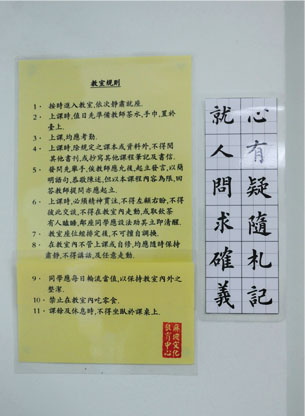 教室規則
1、按時進入教室,依次靜肅就座。
2、上課時,值日先準備教師茶水,手巾,置於
臺上。
3、上課,均應考勤。
4、上課時,除規定之課本或資料外,不得閱
其他書刊,或抄寫其他課程筆記及書信。
5、發問先舉手,俟教師應允後,起立發言,以簡
明語句,恭敬陳述,但以本課程內容為限,回
答教師提問亦應起立。
6、上課時,必須精神貫注,不得左顧右盼,不得
彼此交談,不得在教室內走動,或取飲茶
有人瞌睡,鄰座同學應設法助其立即清醒。
7、教室座位經排定後,不可擅自調換。
8、在教室內不管上課或自修,均應隨時保持
肅靜,不得談話,及任意走動。
9、同學應每日輪流當值,以保持教室內外之
整潔。
10、禁止在教室內吃零食。
11、課餘及休息時,不得坐臥於課桌上。
心有疑隨札記
就人問求確義